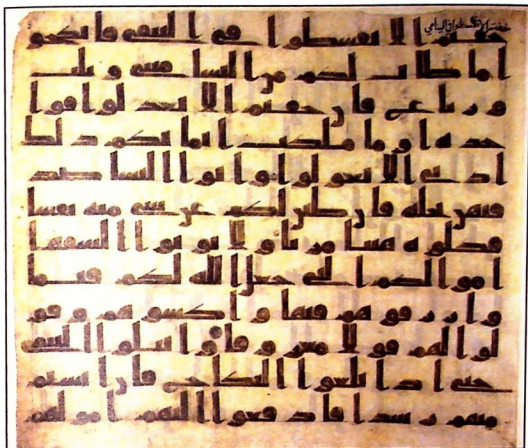 خفتم الا تقسطوا في اليتمى فانكحو
ا ما طاب لكم من النسا مثنى وثلث
ورباع فان خفتم الا تعدلوا فوا
حده او ما ملكت ايمانكم ذلك
ادنى الا تعولوا واتوا النسا صدقت
هن نحله فان طبن لكم عن شي منه نفسا
فكلوه هنيا مريا ولا توتوا السفها
اموالكم التي جعل الله لكم قيما
وارزقوهم فيها واكسوهم وقو
لوا لهم قولا معروفا وابتلوا اليتمى
حتى اذا بلغوا النكاح فان انستم
منهم رشدا فادفعوا اليهم امولهم